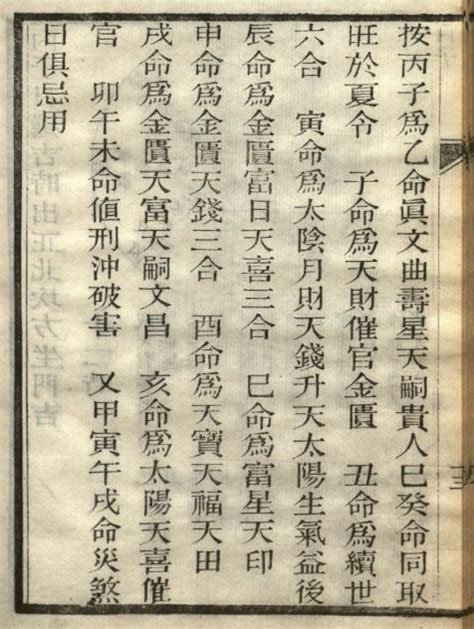 按丙子爲乙命眞文曲壽星天嗣貴人巳癸命同取
旺於夏令　子命爲天財催官金匱　丑命爲續世
六合　寅命爲太陰月財天錢升天太陽生氣益後
辰命爲金匱富日天喜三合　巳命爲富星天印
申命爲金匱天錢三合　酉命爲天寶天福天田
戌命爲金匱天富天嗣文昌　亥命爲太陽天喜催
官　卯午未命値刑沖破害　又甲寅午戌命災煞
日俱忌用